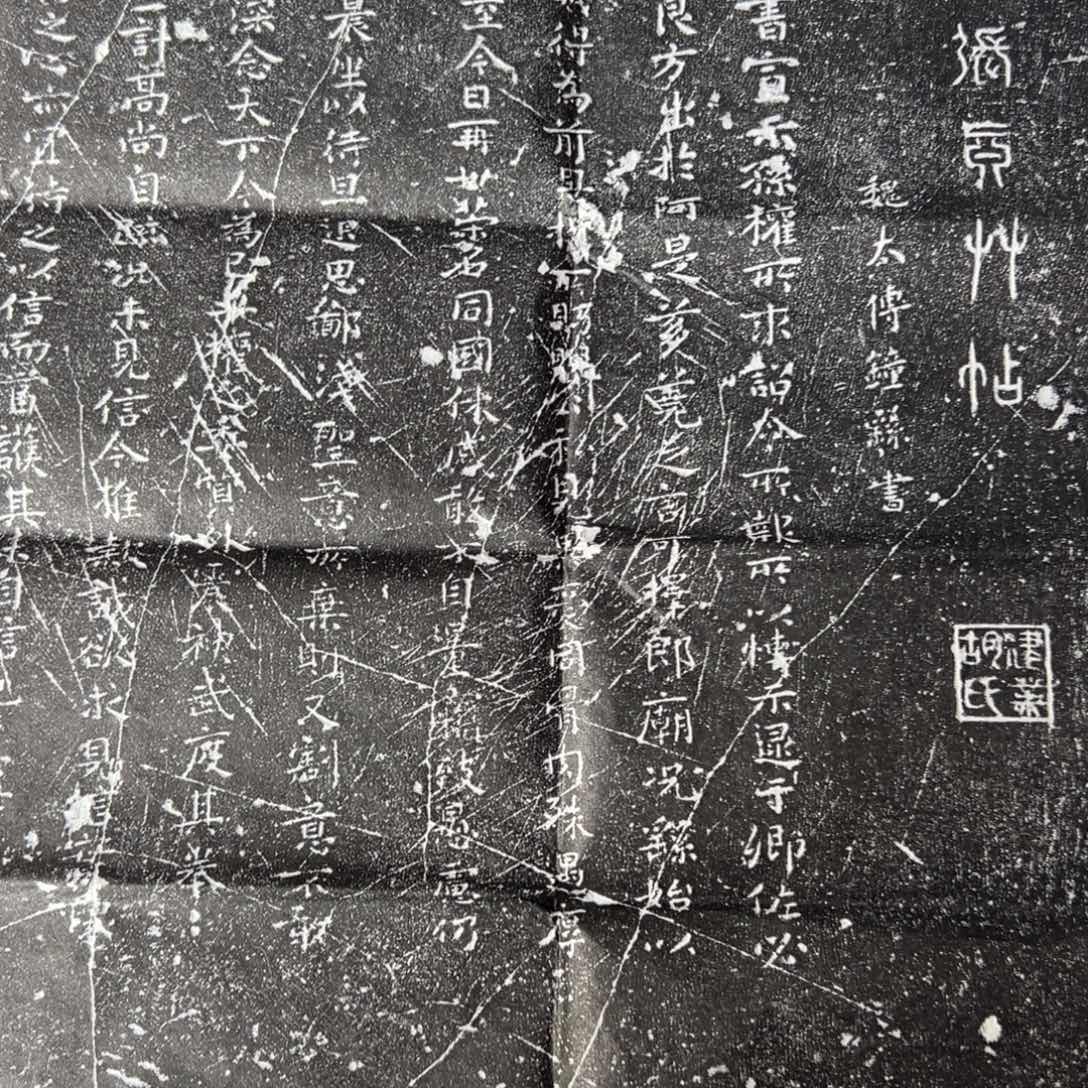 艸帖
魏太傅鍾繇書
胡氏
書宣示孫權所求詔令所報所以博示逮于卿佐必
良方出於阿是芻蕘之言可擇郎廟況繇始以
得為前恩橫所盼睨公私見異愛同骨肉殊遇厚
至今日再世榮名同國休慼敢不自量竊致愚慮仍
晨坐以待旦退思鄙淺聖意所棄則又割意不敢
深念天下今為已平權之委質外震神武度其拳
計高尚自疏況未見信今推款誠欲求見信實懷
之心亦宜待之以信而當護其未自信也